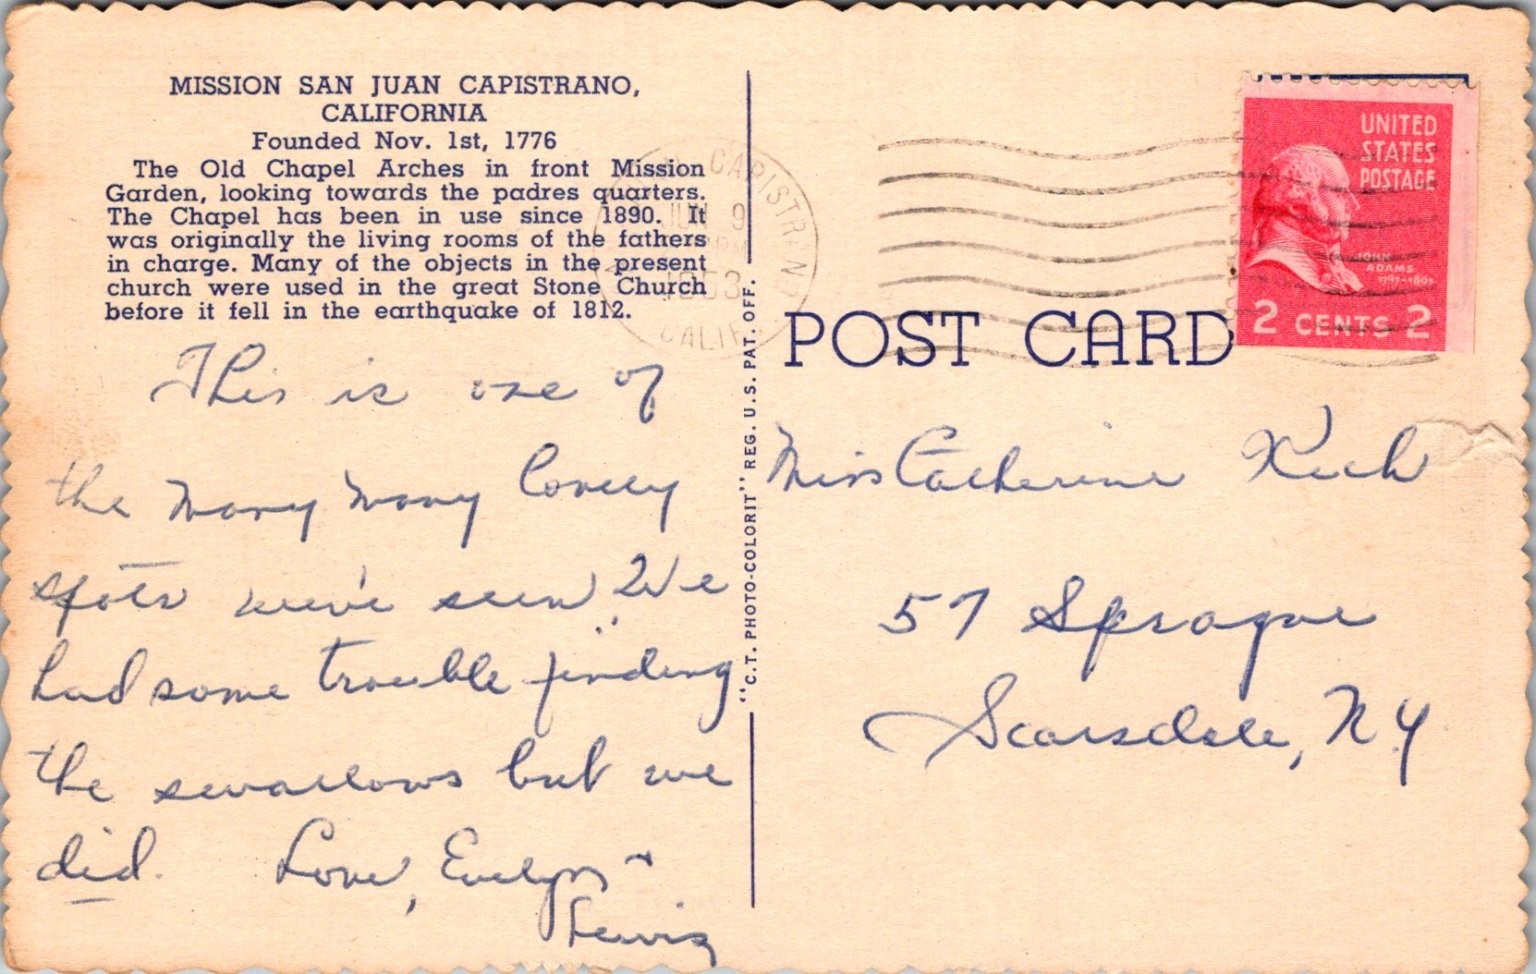 MISSION SAN JUAN CAPISTRANO,
CALIFORNIA
Founded Nov. 1st, 1776
The Old Chapel Arches in front Mission
Garden, looking towards the padres quarters.
The Chapel has been in use since 1890. It
was originally the living rooms of the fathers
in charge. Many of the objects in the present
church were used in the great Stone Church
before it fell in the earthquake of 1812.
This is one of
the many many lovely
spots we've seen. We
had some trouble finding
the swallows but we
did. Love, Evelyn +
Lewis
"C.T. PHOTO-COLORIT" REG. U.S. PAT. OFF.
CAPISTRANO
JUN 9
PM
1953
CALIF.
UNITED
STATES
POSTAGE
JOHN
ADAMS
1797-1801
2 CENTS 2
POST CARD
Miss Catherine
57 Sprague
Scarsdale, NY